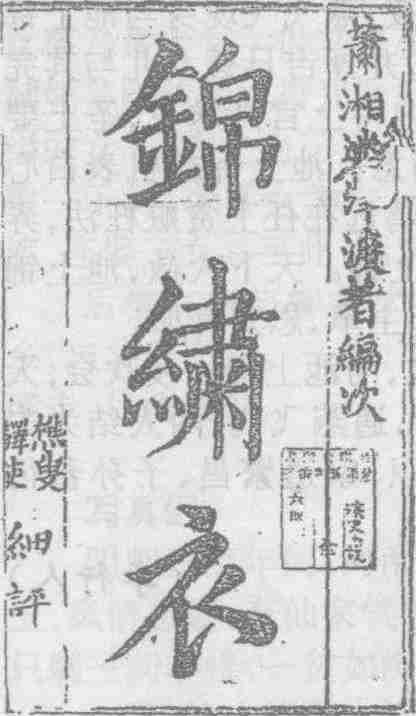 蕭湘迷津渡者編次
錦繡衣
樵叟
驛使
細評